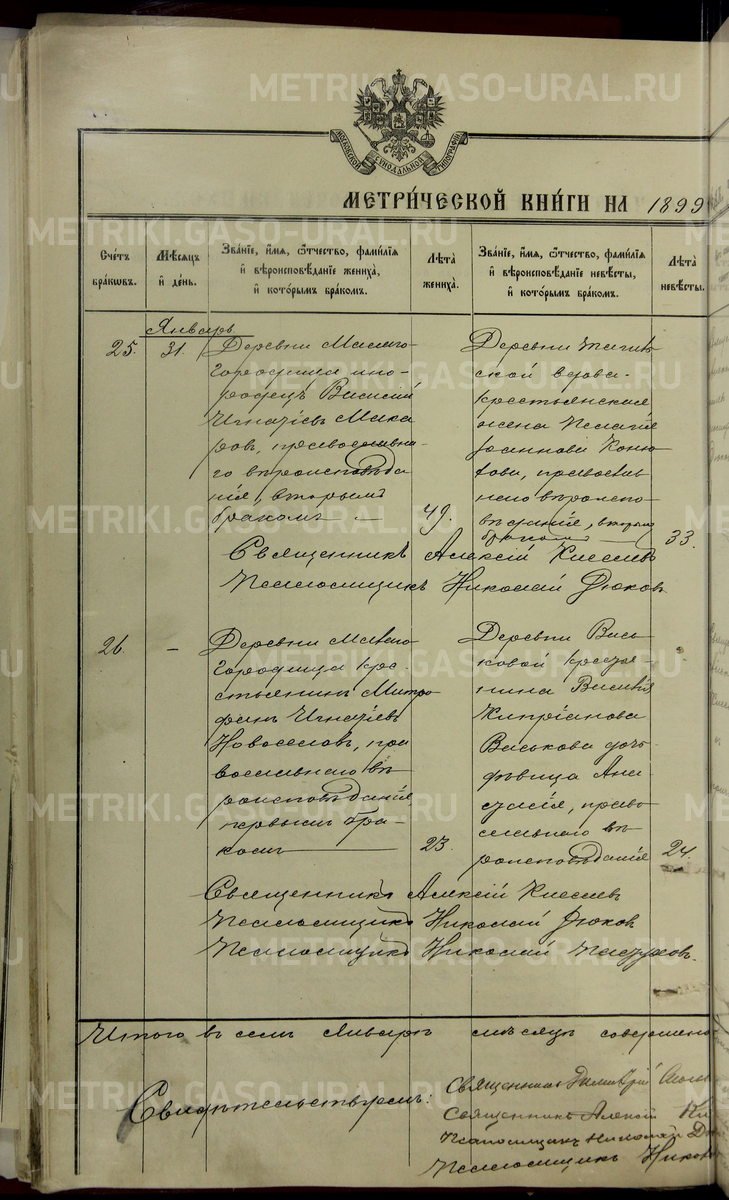 МОСКОВСКОЙ СѴНОДАЛЬНОЙ ТИПОГРАФІИ
МЕТРИ́ЧЕСКОЙ КНИ́ГИ НА 1899
Сче́тъ бра́кωвъ.
Мѣ́сѧцъ и҆ де́нь.
Зва́нїе, и҆́мѧ, ѻ҆́тчество, фами́лїѧ и҆ вѣроисповѣ́данїе жениха̀, и҆ кото́рымъ бра́комъ.
Лѣ́та жениха̀.
Зва́нїе, и҆́мѧ, ѻ҆́тчество, фами́лїѧ и҆ вѣроисповѣ́данїе невѣ́сты, и҆ кото́рымъ бра́комъ.
Лѣ́та невѣ́сты.
Январь
25.
31.
Деревни Малаго
городища ино-
родецъ Василий
Игнатіевъ Мака
ровъ, православна-
го вѣроисповѣда
нія, вторымъ
бракомъ
49.
Деревни
ской вдова-
крестьянская
жена Пелагія
Іоаннова
православ
наго вѣроиспо-
вѣданія, вторымъ
бракомъ
33.
Священникъ Алексій Киселевъ
Псаломщикъ Николай Дюковъ
26.
-
Деревни Малаго
Городища кре-
стьянинъ Митро
фанъ Игнатіевъ
Новоселовъ, пра
вославнаго вѣ
роисповѣданія
первымъ бра-
комъ
23.
Деревни Вась
ковой крестья
нина Василія
Кипріанова
Васькова дочь
дѣвица Ана
стасія, право
славнаго вѣ
роисповѣданія
24.
Священникъ Алексій Киселевъ
Псаломщикъ Николай Дюковъ
Псаломщикъ Николай
Итого въ семъ Январѣ мѣсяцѣ совершено
Свидѣтельствуемъ:
Священникъ Димитрій
Священникъ Алексій Ки
Псаломщикъ Николай Д
Псаломщикъ Никол
METRIKI.GASO-URAL.RU